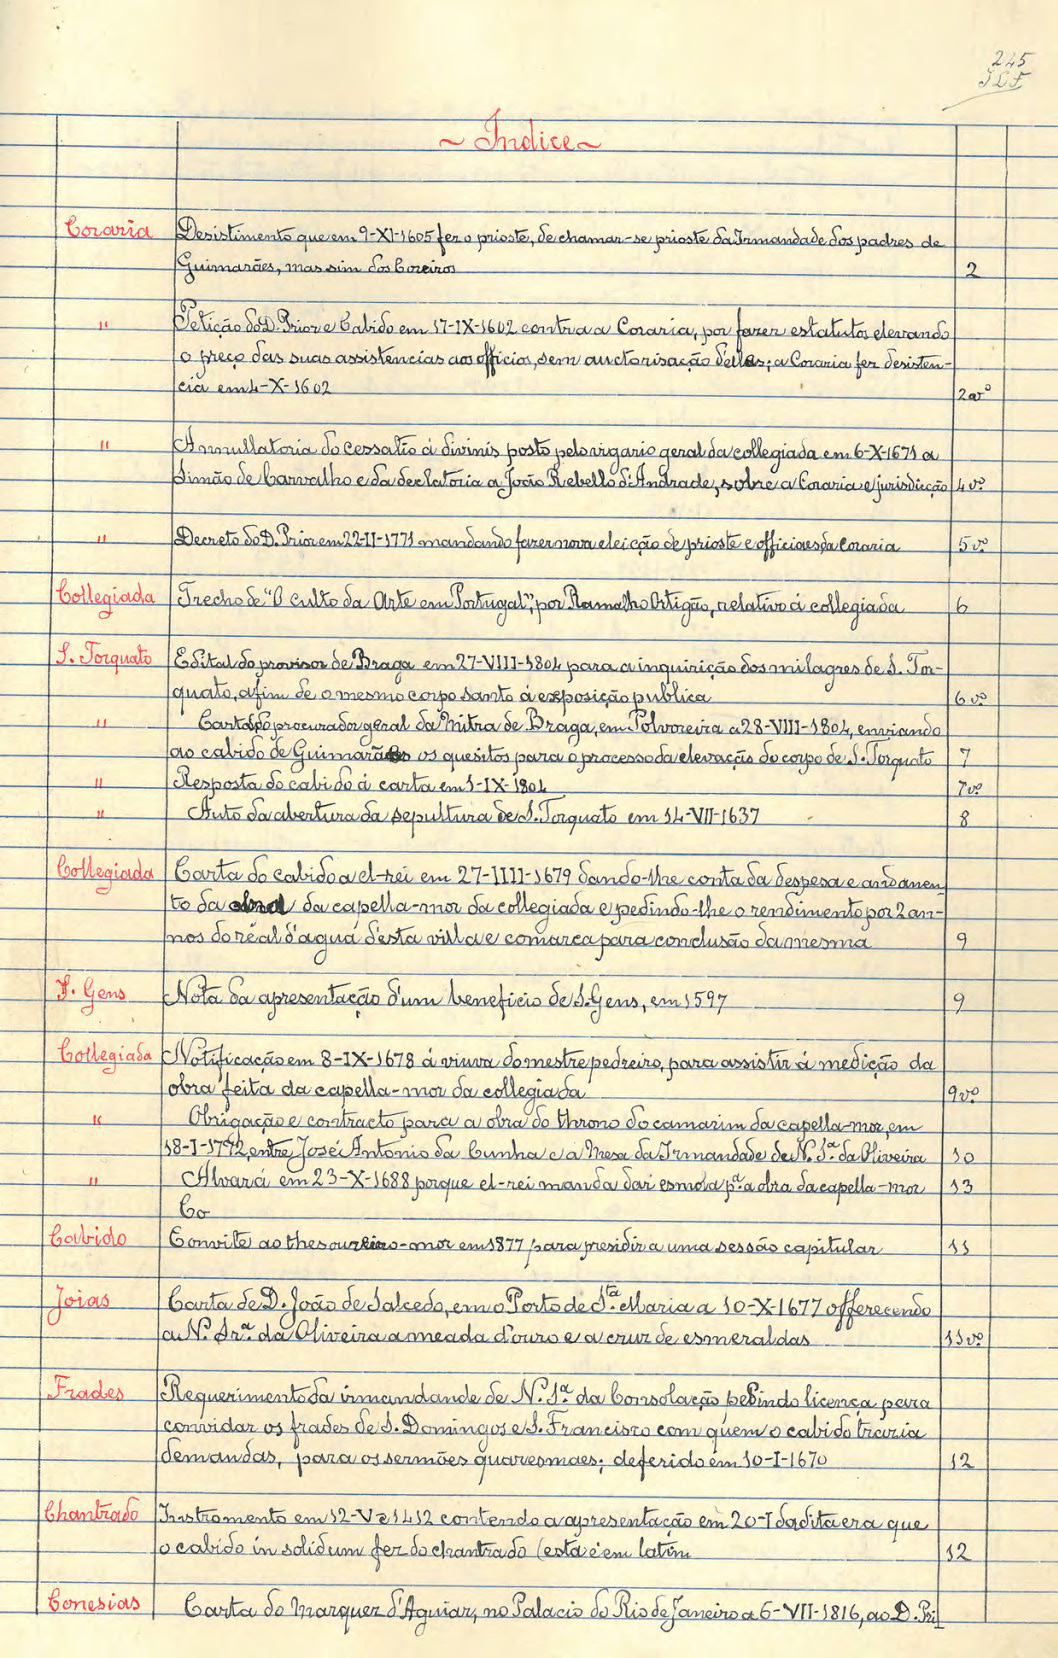 245
~ Indice ~
Coraria Desistimento que em 9-XI-1605 fez o prioste, de chamar-se prioste da Irmandade dos padres de
Guimarães, mas sim dos Coreiros 2
" Petição do D. Prior e Cabido em 17-IX-1602 contra a Coraria, por fazer estatutos elevando
o preço das suas assistencias aos officios, sem auctorisação delles; a Coraria fez desisten-
cia em 4-X-1602 2 vº
" Annullatoria do cessatio á divinis posto pelo vigario geral da collegiada em 6-X-1671 a
Simão de Carvalho e da declatoria a João Rebello d'Andrade, sobre a Coraria e jurisdicção 4 vº
" Decreto do D. Prior em 22-II-1771 mandando fazer nova eleição de prioste e officiaes da Coraria 5 vº
Collegiada Trecho de "O culto da Arte em Portugal", por Ramalho Ortigão, relativo á collegiada 6
S. Torquato Edital do provisor de Braga em 27-VIII-1804 para a inquirição dos milagres de S. Tor-
quato, afim de o mesmo corpo santo á exposição publica 6 vº
" Carta do procurador geral da Mitra de Braga, em Polvoreira a 28-VIII-1804, enviando
ao cabido de Guimarães os quesitos para o processo da elevação do corpo de S. Torquato 7
" Resposta do cabido á carta em 1-IX-1804 7 vº
" Auto da abertura da sepultura de S. Torquato em 14-VII-1637 8
Collegiada Carta do cabido a el-rei em 27-IIII-1679 dando-lhe conta da despesa e andamen-
to da obra da capella-mor da collegiada e pedindo-lhe o rendimento por 2 an-
nos do réal d'agua d'esta villa e comarca para conclusão da mesma 9
S. Gens Nota da apresentação d'um beneficio de S. Gens, em 1597 9
Collegiada Notificação em 8-IX-1678 á viuva do mestre pedreiro, para assistir á medição da
obra feita da capella-mor da collegiada 9 vº
" Obrigação e contracto para a obra do throno do camarim da capella-mor, em
18-I-1772, entre José Antonio da Cunha e a Mesa da Irmandade de N. Sª. da Oliveira 10
" Alvará em 23-X-1688 porque el-rei manda dar esmola pª a obra da capella-mor 13
Co
Cabido Convite ao thesoureiro-mor em 1877 para presidir a uma sessão capitular 11
Joias Carta de D. João de Salcedo, em o Porto de Stª. Maria a 10-X-1677 offerecendo
a Nª. Srª. da Oliveira a meada d'ouro e a cruz de esmeraldas 11 vº
Frades Requerimento da irmandande de N. Sª. da Consolação pedindo licença para
convidar os frades de S. Domingos e S. Francisco com quem o cabido trazia
demandas, para os sermões quaresmaes; deferido em 10-I-1670 12
Chantrado Instromento em 12-V-1412 contendo a apresentação em 20-I da dita era que
o cabido in solidum fez do chantrado (está é em latim 12
Conesias Carta do Marquez d'Aguiar, no Palacio do Rio de Janeiro a 6-VII-1816, ao D. Pri